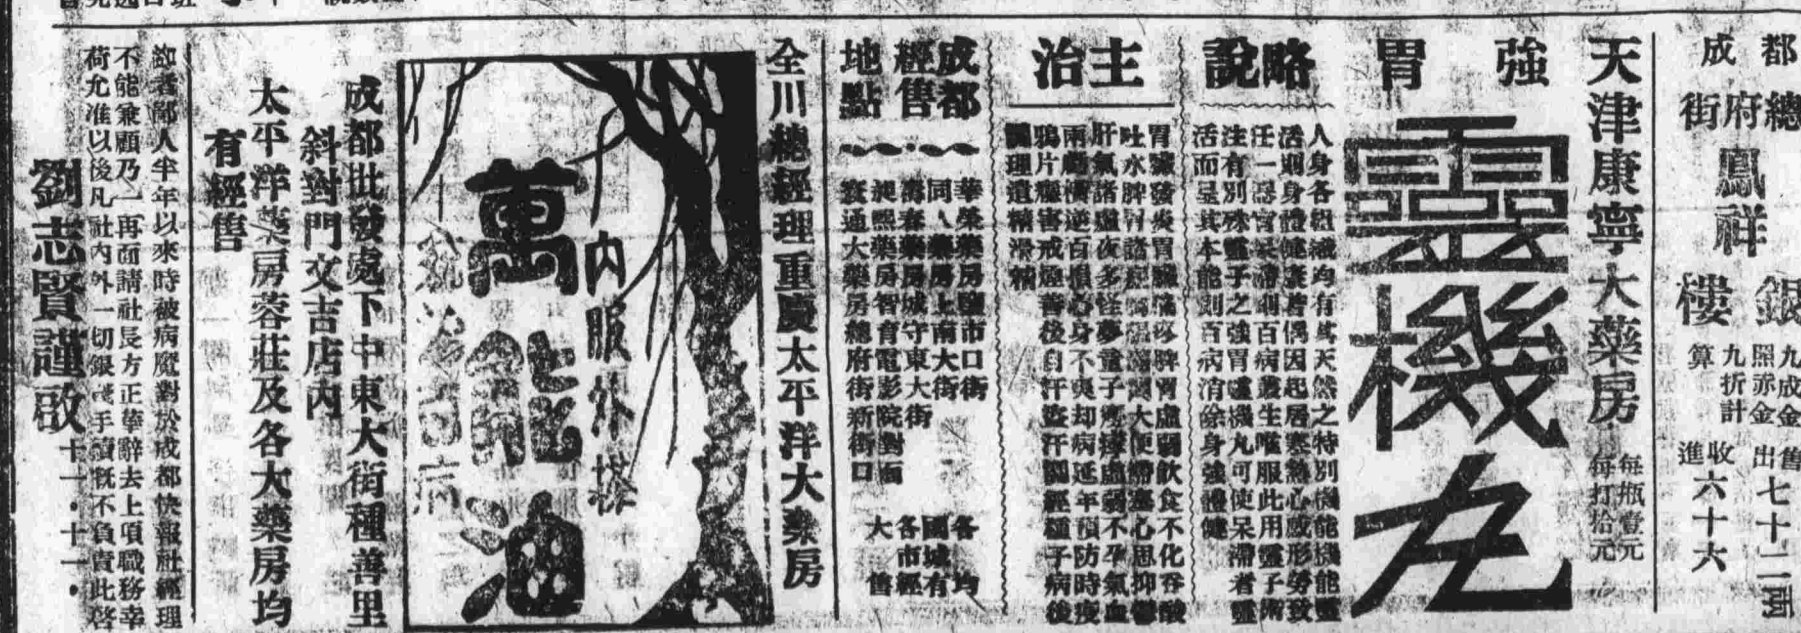 成都總府街
鳳祥銀樓
九成金照赤金九折計算
售出七十二兩
收進六十六
天津康寧大藥房
每瓶壹元
每打拾元
強胃
靈機丸
略說
人身各組織均有其天然之特別機能機能靈
活則身體健康若偶因起居寒熱心感形勞致
任一器官呆滯則百病叢生唯服此用靈子術
注有別殊靈子之強胃靈機丸可使呆滯者靈
活而呈其本能則百病消除身強體健
主治
胃臟發炎胃臟痛疼脾胃虛弱飲食不化吞酸
吐水脾胃諸症 大便 塞心思抑鬱
肝氣諸虛夜多怪夢童子癆瘵虛弱不孕氣血
兩虧 逆百損心身不爽却病延年預防時疫
鴉片癮害戒煙善後自汗盜汗調經種子病後
調理遺精滑精
成都經售地點
華榮藥房鹽市口街
同人藥房上南大街
壽春藥房城守東大街
昶熙藥房智育電影院對面
寰通大藥房總府街新街口
各國各大
均有經售
全川總經理重慶太平洋大藥房
內服外搽
萬能油
統治百病
成都批發處下中東大街種善里
斜對門文吉店內
太平洋藥房蓉莊及各大藥房均
有經售
啟者鄙人半年以來時被病魔對於成都快報社經理
不能兼顧乃一再面請社長方正華辭去上項職務幸
荷允准以後凡社內外一切銀錢手續概不負責此啓
劉志賢謹啟
十一·十一·